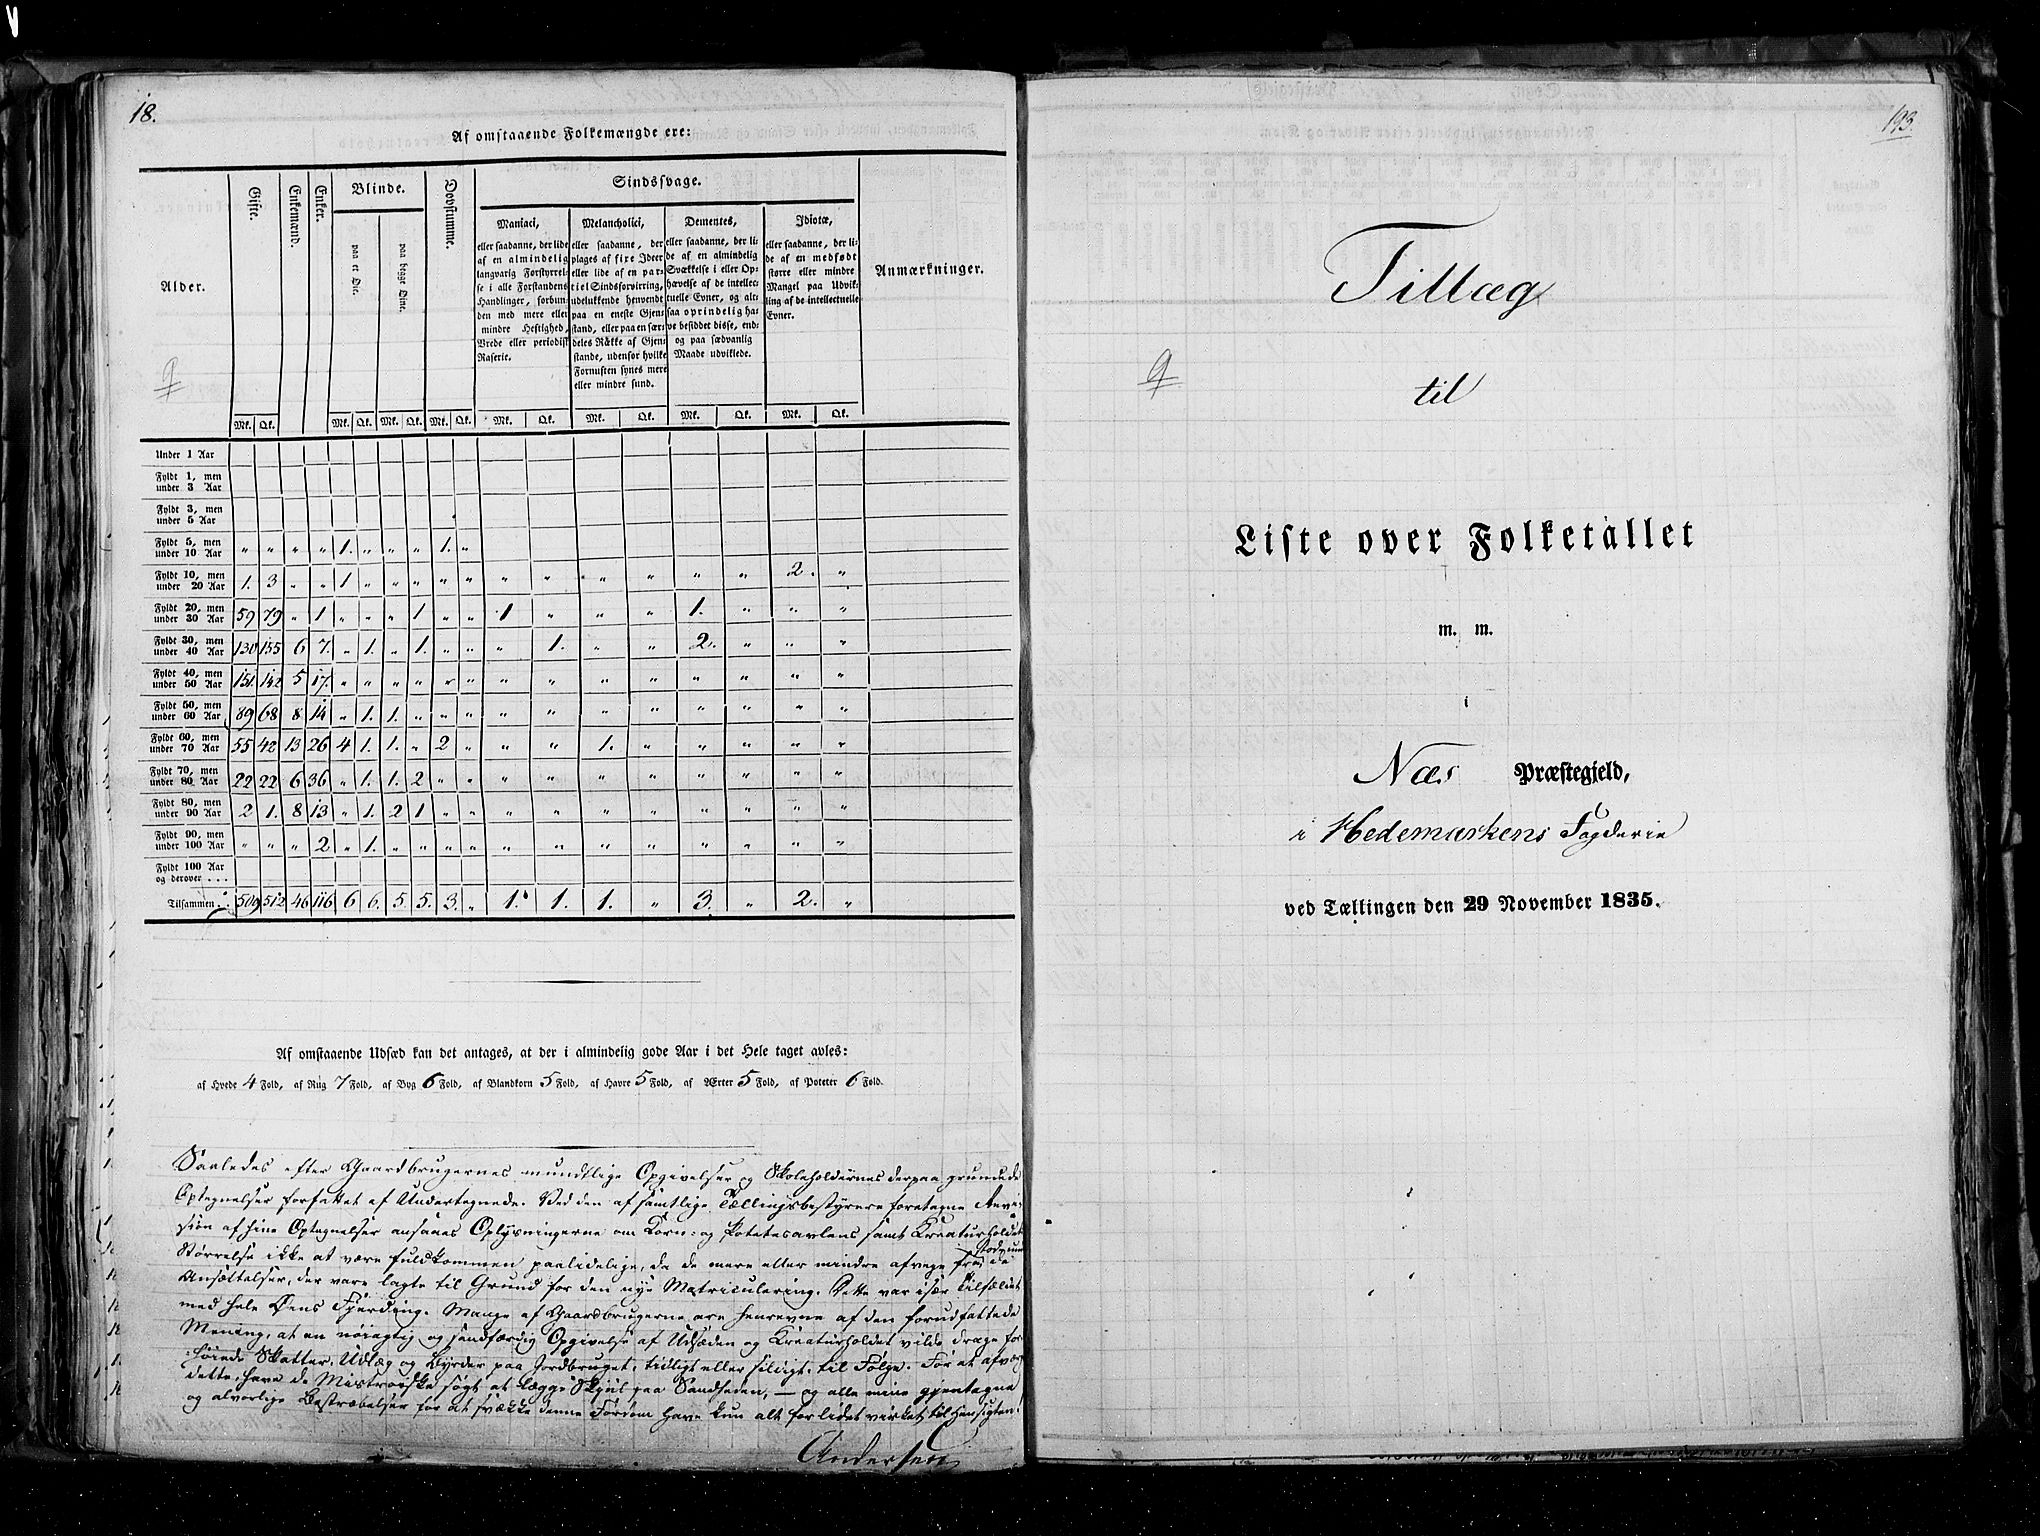 18.
Af omstaaende Folkemængde ere:
Alder.
Gifte.
Enkemænd.
Enker.
Blinde.
paa et Øie.
paa begge Øine.
Døvstumme.
Sindssvage.
Maniaci,
eller saadanne, der lide
af en almindelig
langvarig Forstyrrel-
se i alle Forstandens
Handlinger, forbun-
den med mere eller
mindre Heftighed,
Vrede eller periodisk
Raserie.
Melancholici,
eller saadanne, der
plages af fixe Ideer
eller lide af en par-
tiel Sindsforvirring,
udelukkende henvendt
paa en eneste Gjen-
stand, eller paa en sær-
deles Række af Gjen-
stande, udenfor hvilke
Fornuften synes mere
eller mindre sund.
Dementes,
eller saadanne, der li-
de af en almindelig
Svækkelse i eller Op-
hævelse af de intellec-
tuelle Evner, og alt-
saa oprindelig ha-
ve besiddet disse, end-
og paa sædvanlig
Maade udviklede.
Idiotæ,
eller saadanne, der li-
de af en medfødt
større eller mindre
Mangel paa Udvik-
ling af de intellectuelle
Evner.
Anmærkninger.
9
Mk. Qk. Mk. Qk. Mk. Qk. Mk. Qk. Mk. Qk. Mk. Qk. Mk. Qk. Mk. Qk.
Under 1 Aar
Fyldt 1, men
under 3 Aar
Fyldt 3, men
under 5 Aar
Fyldt 5, men
under 10 Aar " " " " 1. " " " 1. "
Fyldt 10, men
under 20 Aar 1. 3 " " 1 " " " " " " " " " " " 2. "
Fyldt 20, men
under 30 Aar 59 79 " 1 " " " 1 " " 1 " " " 1. " " "
Fyldt 30, men
under 40 Aar 130 155 6 7. " 1. " 1. " " " 1. " " 2. " " "
Fyldt 40, men
under 50 Aar 151. 142 5 17. " " " " " " " " " " " " " "
Fyldt 50, men
under 60 Aar 89 68 8 14 " 1. 1. " " " " " " " " " " "
Fyldt 60, men
under 70 Aar 55 42 13 26 4 1. 1. " 2 " " " 1. " " " " "
Fyldt 70, men
under 80 Aar 22 22 6 36 " 1. 1. 2 " " " " " " " " " "
Fyldt 80, men
under 90 Aar 2 1. 8 13 " 1. 2 1 " " " " " " " " " "
Fyldt 90, men
under 100 Aar " " " 2 " 1. " " " " " " " " " " " "
Fyldt 100 Aar
og derover . . .
Tilsammen . . 509 512 46 116 6 6. 5. 5. 3. " 1. 1. 1. " 3. " 2. "
Af omstaaende Udsæd kan det antages, at der i almindelig gode Aar i det Hele taget avles:
af Hvede 4 Fold, af Rug 7 Fold, af Byg 6 Fold, af Blandkorn 5 Fold, af Havre 5 Fold, af Ærter 5 Fold, af Poteter 6 Fold.
Saaledes efter Gaardbrugernes mundtlige Opgivelser og Skoleholdernes derpaa grundede
Optegnelser forfattet af Undertegnede. Ved den af samtlige Tællingsbestyrere foretagne Revi-
sion af hine Optegnelser ansaaes Oplysningerne om Korn- og Potetesavlens samt Kreaturholdets
Størrelse ikke at være fuldkommen paalidelige, da de mere eller mindre afvege fra de
Ansættelser, der vare lagte til Grund for den nye Matriculering. Dette var især Tilfældet
med hele Øens Fjerding. Mange af Gaardbrugerne ere henrevne af den forudfattede
Mening, at en nöiagtig og sandfærdig Opgivelse af Udsæden og Kreaturholdet vilde drage for-
höiede Skatter, Udlæg og Byrder paa Jordbruget, tidligt eller sildigt, til Følge. For at afværge
dette, have de Mistroiske søgt at lægge Skjul paa Sandheden, — og alle mine gjentagne
og alvorlige Bestræbelser for at svække denne Fordom have kun alt for lidet virket til Hensigten.
Andersen
193.
Tillæg
9
til
Liste over Folketallet
m. m.
i
Næs Præstegjeld,
i Hedemarkens Fogderie
ved Tællingen den 29 November 1835.